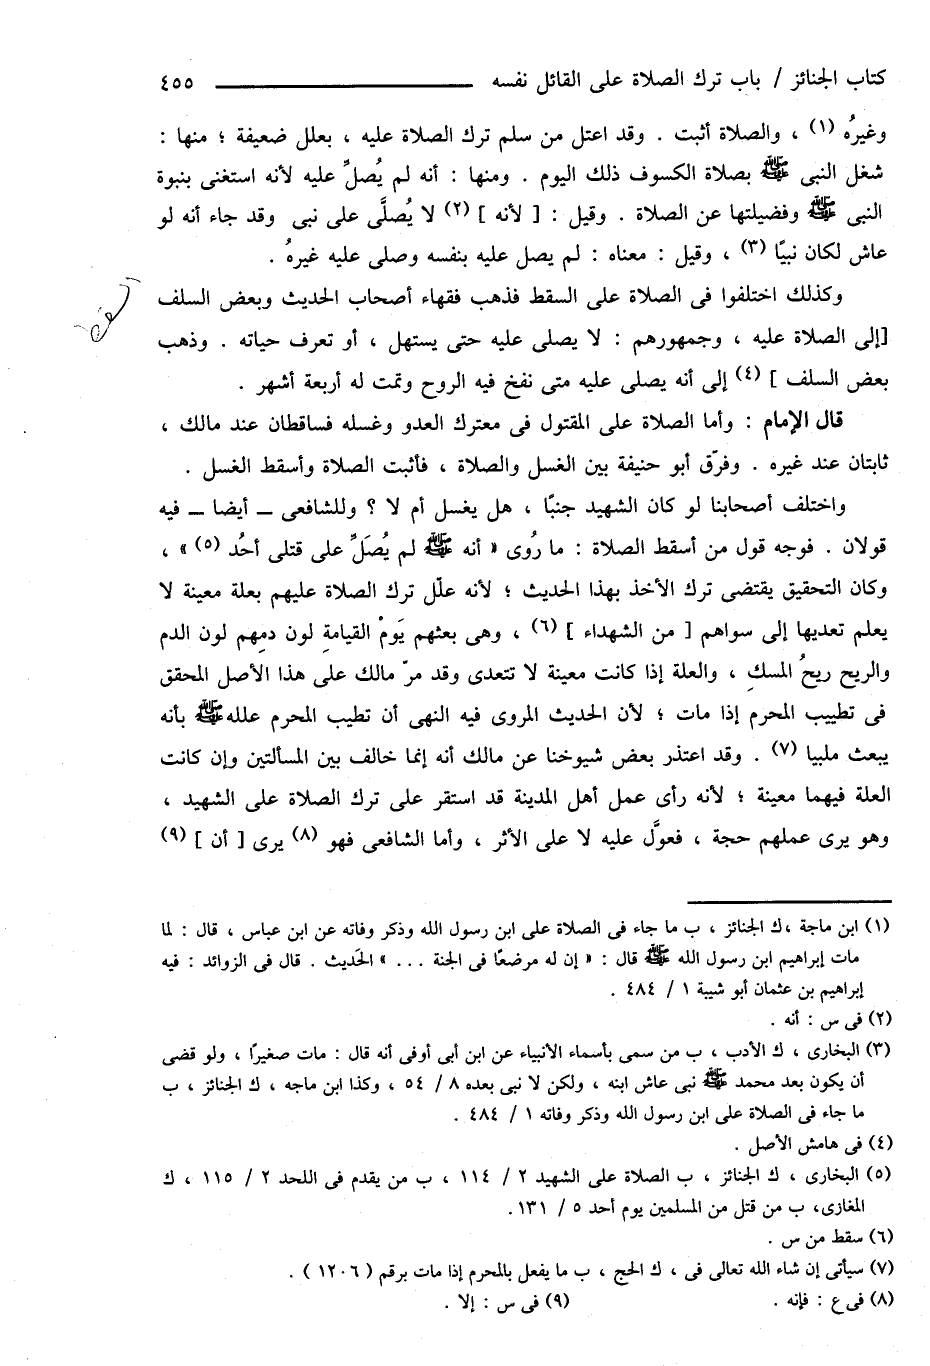 كتاب الجنائز / باب ترك الصلاة على القاتل نفسه ــــــــــــ ٤٥٥
وغيرُه (١) ، والصلاة أثبت . وقد اعتل من سلم ترك الصلاة عليه ، بعلل ضعيفة ؛ منها :
شغل النبى ﷺ بصلاة الكسوف ذلك اليوم . ومنها : أنه لم يُصلِّ عليه لأنه استغنى بنبوة
النبى ﷺ وفضيلتها عن الصلاة . وقيل : [ لأنه ] (٢) لا يُصلَّى على نبى وقد جاء أنه لو
عاش لكان نبيًا (٣) ، وقيل : معناه : لم يصل عليه بنفسه وصلى عليه غيرهُ .
وكذلك اختلفوا فى الصلاة على السقط فذهب فقهاء أصحاب الحديث وبعض السلف
[إلى الصلاة عليه ، وجمهورهم : لا يصلى عليه حتى يستهل ، أو تعرف حياته . وذهب
بعض السلف ] (٤) إلى أنه يصلى عليه متى نفخ فيه الروح وتمت له أربعة أشهر .
قال الإمام : وأما الصلاة على المقتول فى معترك العدو وغسله فساقطان عند مالك ،
ثابتان عند غيره . وفرّق أبو حنيفة بين الغسل والصلاة ، فأثبت الصلاة وأسقط الغسل .
واختلف أصحابنا لو كان الشهيد جنبًا ، هل يغسل أم لا ؟ وللشافعى ــ أيضا ــ فيه
قولان . فوجه قول من أسقط الصلاة : ما رُوى « أنه ﷺ لم يُصَلِّ على قتلى أحُد (٥) » ،
وكان التحقيق يقتضى ترك الأخذ بهذا الحديث ؛ لأنه علّل ترك الصلاة عليهم بعلة معينة لا
يعلم تعديها إلى سواهم [ من الشهداء ] (٦) ، وهى بعثهم يَومْ القيامةِ لون دمهم لون الدم
والريح ريحُ المسكِ ، والعلة إذا كانت معينة لا تتعدى وقد مرّ مالك على هذا الأصل المحقق
فى تطييب المحرم إذا مات ؛ لأن الحديث المروى فيه النهى أن تطيب المحرم علله ﷺ بأنه
يبعث ملبيا (٧) . وقد اعتذر بعض شيوخنا عن مالك أنه إنما خالف بين المسألتين وإن كانت
العلة فيهما معينة ؛ لأنه رأى عمل أهل المدينة قد استقر على ترك الصلاة على الشهيد ،
وهو يرى عملهم حجة ، فعوَّل عليه لا على الأثر ، وأما الشافعى فهو (٨) يرى [ أن ] (٩)
(١) ابن ماجة ،ك الجنائز ، ب ما جاء فى الصلاة على ابن رسول الله وذكر وفاته عن ابن عباس ، قال : لما
مات إبراهيم ابن رسول الله ﷺ قال : « إن له مرضعًا فى الجنة ... » الحَديث . قال فى الزوائد : فيه
إبراهيم بن عثمان أبو شيبة ١ / ٤٨٤ .
(٢) فى س : أنه .
(٣) البخارى ، ك الأدب ، ب من سمى بأسماء الأنبياء عن ابن أبى أوفى أنه قال : مات صغيرًا ، ولو قضى
أن يكون بعد محمد ﷺ نبى عاش ابنه ، ولكن لا نبى بعده ٨ / ٥٤ ، وكذا ابن ماجه ، ك الجنائز ، ب
ما جاء فى الصلاة على ابن رسول الله وذكر وفاته ١ / ٤٨٤ .
(٤) فى هامش الأصل .
(٥) البخارى ، ك الجنائز ، ب الصلاة على الشهيد ٢ / ١١٤ ، ب من يقدم فى اللحد ٢ / ١١٥ ، ك
المغازى، ب من قتل من المسلمين يوم أحد ٥ / ١٣١ .
(٦) سقط من س .
(٧) سيأتى إن شاء الله تعالى فى ، ك الحج ، ب ما يفعل بالمحرم إذا مات برقم ( ١٢٠٦ ) .
(٨) فى ع : فإنه . (٩) فى س : إلا .